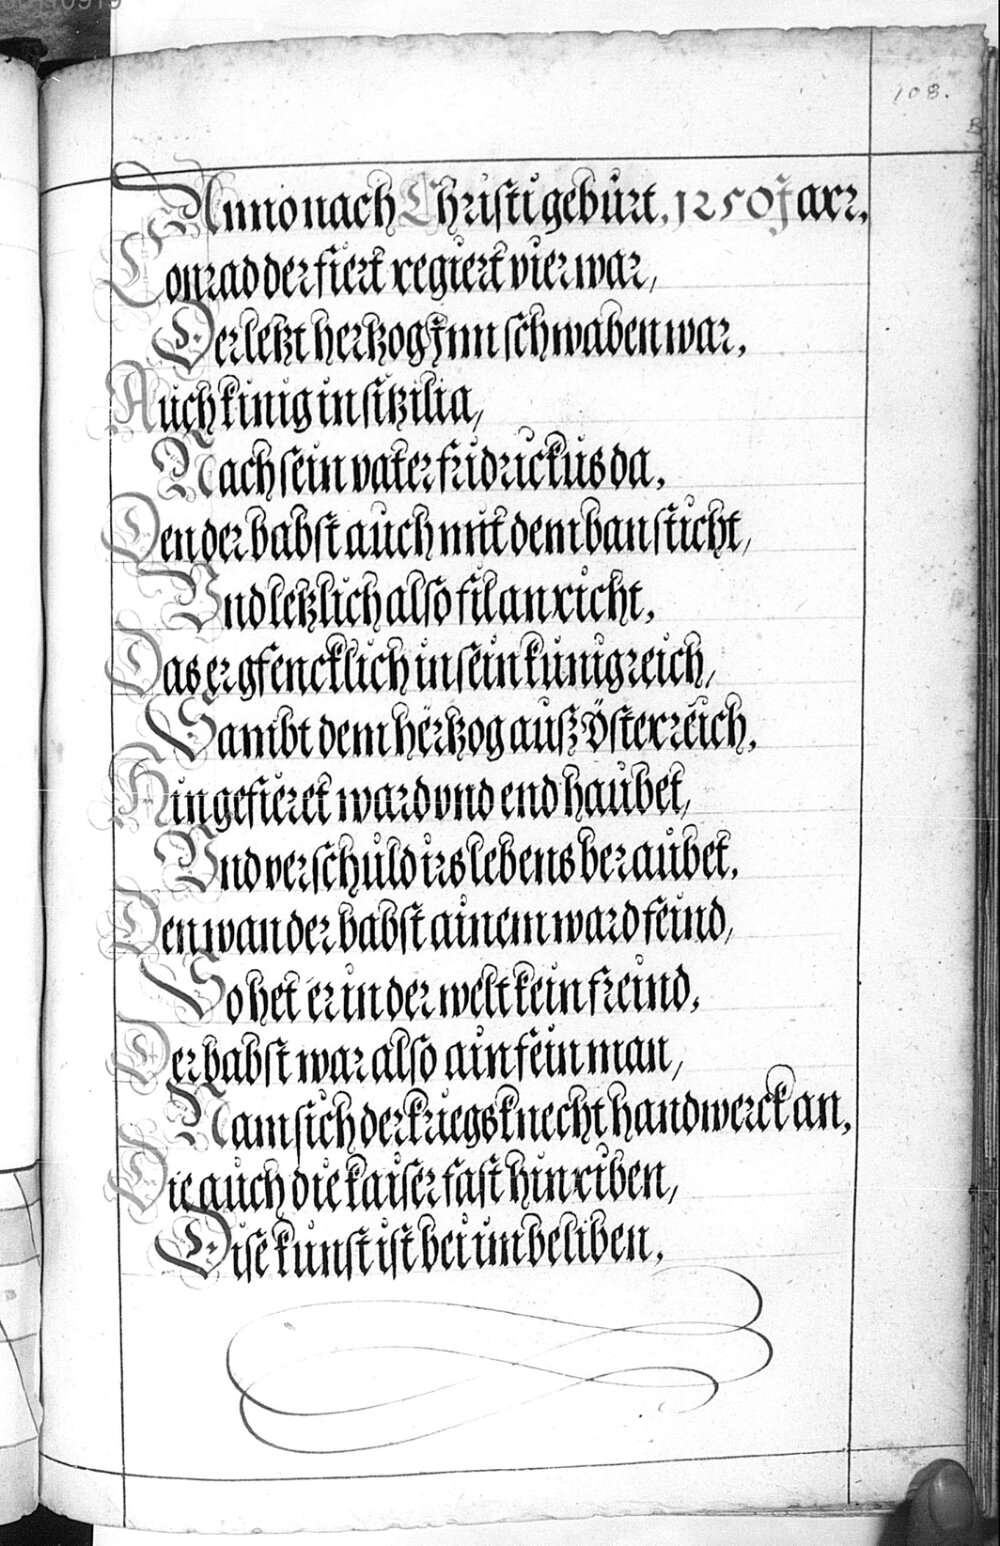 108.
Anno nach Christi geburt, 1250 Jaxr,
Conrad der fiert regiert vier war,
Der letzt hertzog Inn schwaben war,
Auch kinig in sitzilia,
Nach sein vater fridrickus da,
Den der babst auch mit dem ban sticht,
Vnd letzlich also fil anricht,
Das er gfencklich in sein kunigreich,
Sambt dem hertzog auß Österreich,
Hin gefieret ward vnd endhaubet,
Vnd verschuld irs lebens beraubet,
Den wan der babst ainem ward feind,
So het er in der welt kein freind,
Der babst war also ain fein man,
Nam sich der kriegsknecht handwerck an,
Die auch die kaiser fast hinriben,
Dise kunst ist bei im beliben,